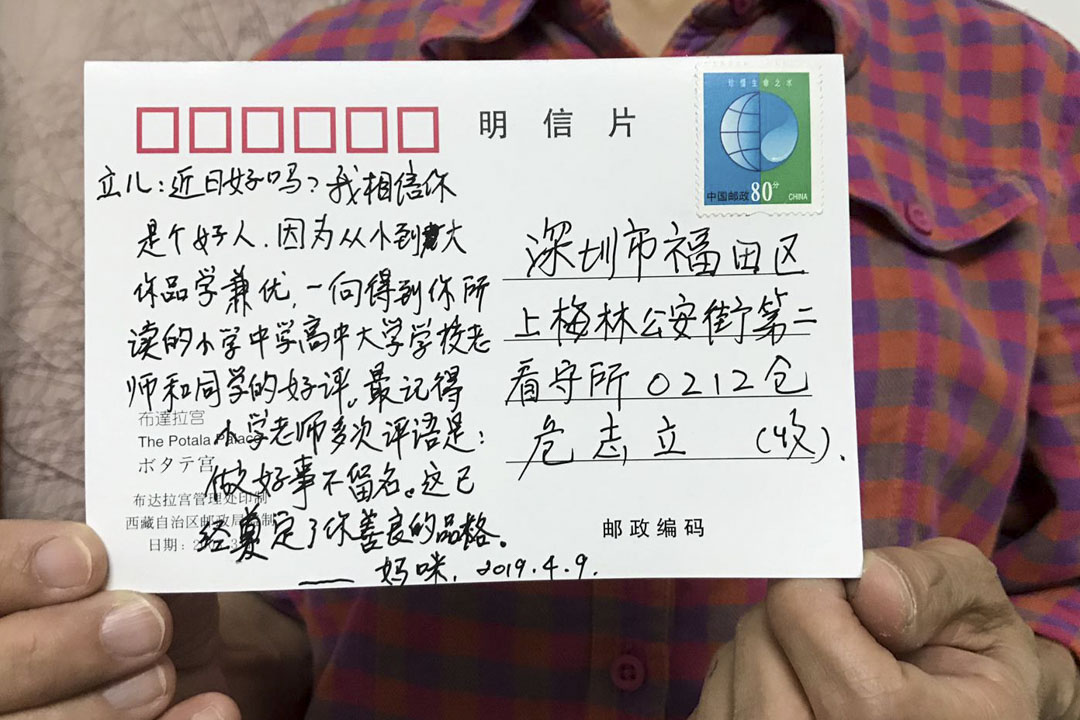 明信片
珍惜生命之水
中国邮政 80分 CHINA
立儿：近日好吗？我相信你
是个好人，因为从小到大
你品学兼优，一向得到你所
读的小学中学高中大学学校老
师和同学的好评。最记得
小学老师多次评语是：
做好事不留名。这已
经奠定了你善良的品格。
—— 妈咪，2019.4.9.
深圳市福田区
上梅林公安街第二
看守所0212仓
危志立 (收).
布達拉宫
The Potala Palace
ポタテ宫
布达拉宫管理处印制
西藏自治区邮政局 制
日期：2
邮政编码